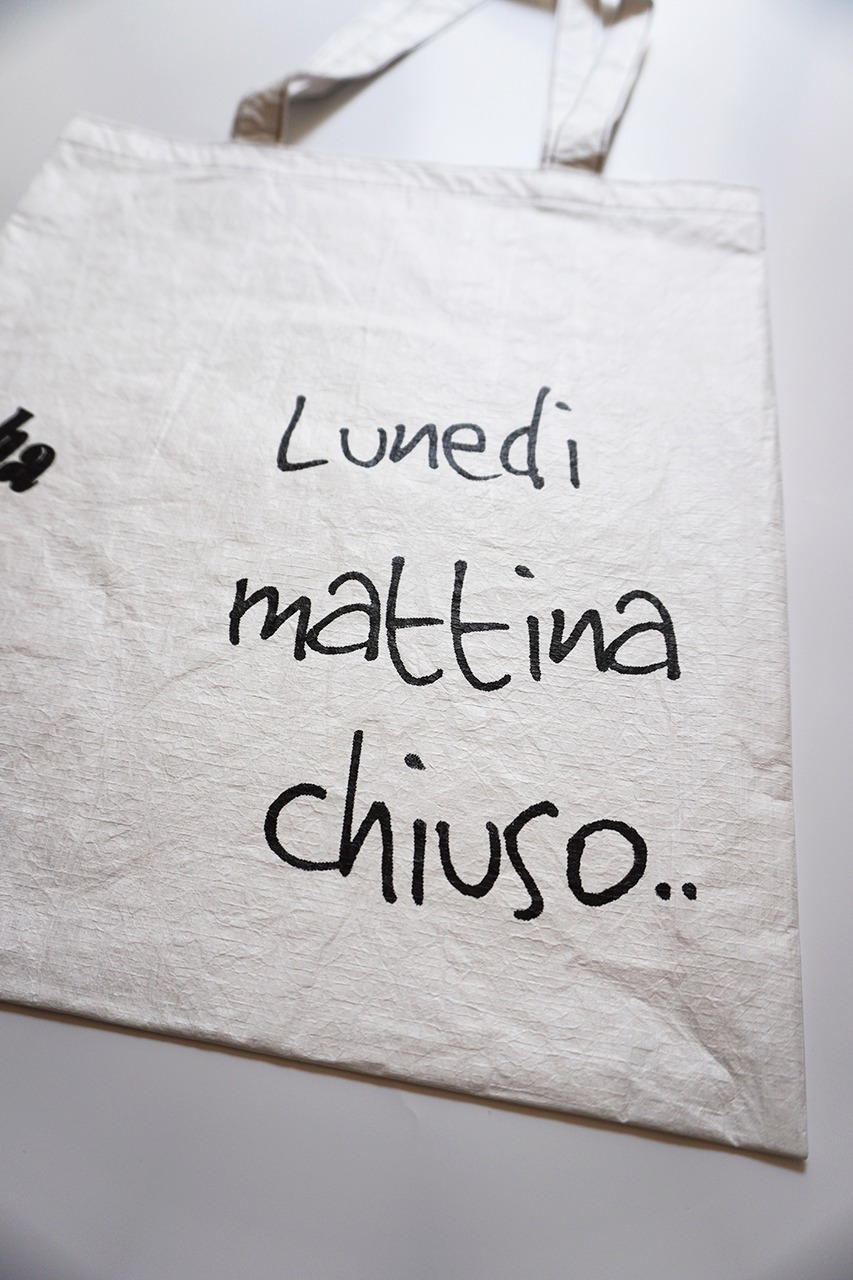 Lunedi
mattina
chiuso..